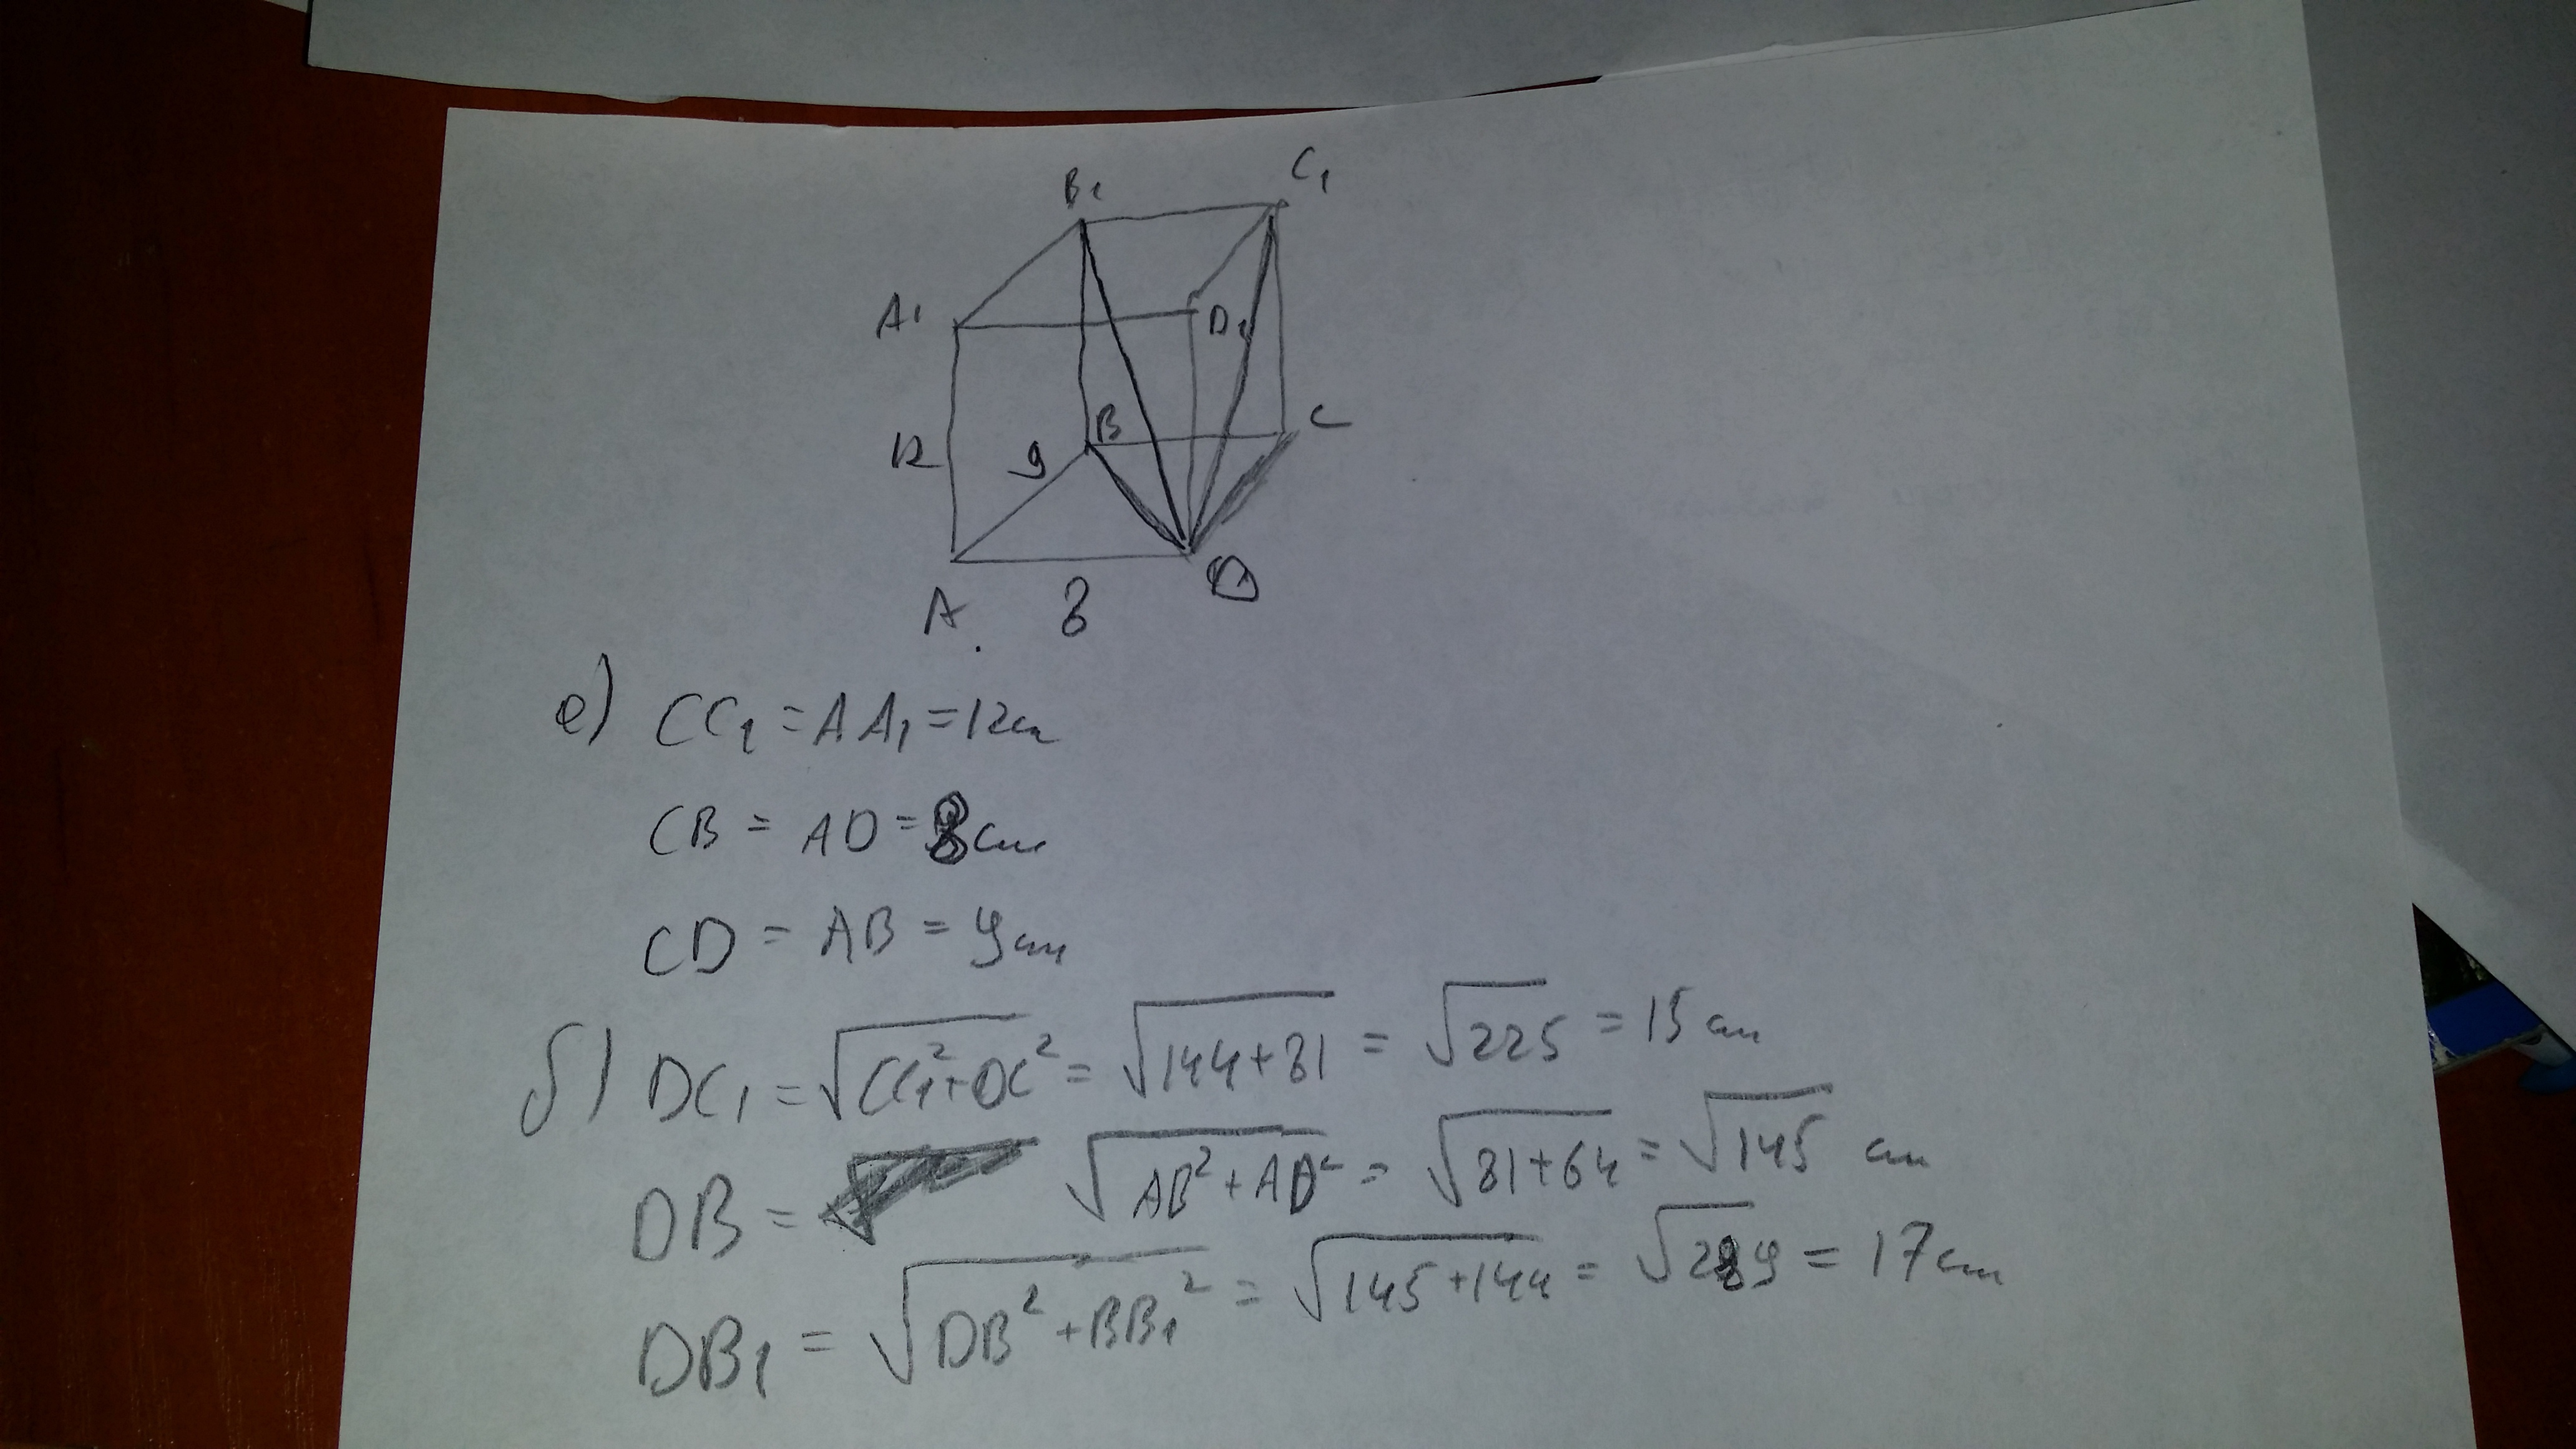 B₁ C₁
A₁ D₁
12 9 B C
A 8 D
а) CC₁ = AA₁ = 12см
CB = AD = 8см
CD = AB = 9см
б) DC₁ = √(CC₁² + DC²) = √(144+81) = √225 = 15 см
DB = √(AB² + AD²) = √(81+64) = √145 см
DB₁ = √(DB² + BB₁²) = √(145+144) = √289 = 17см